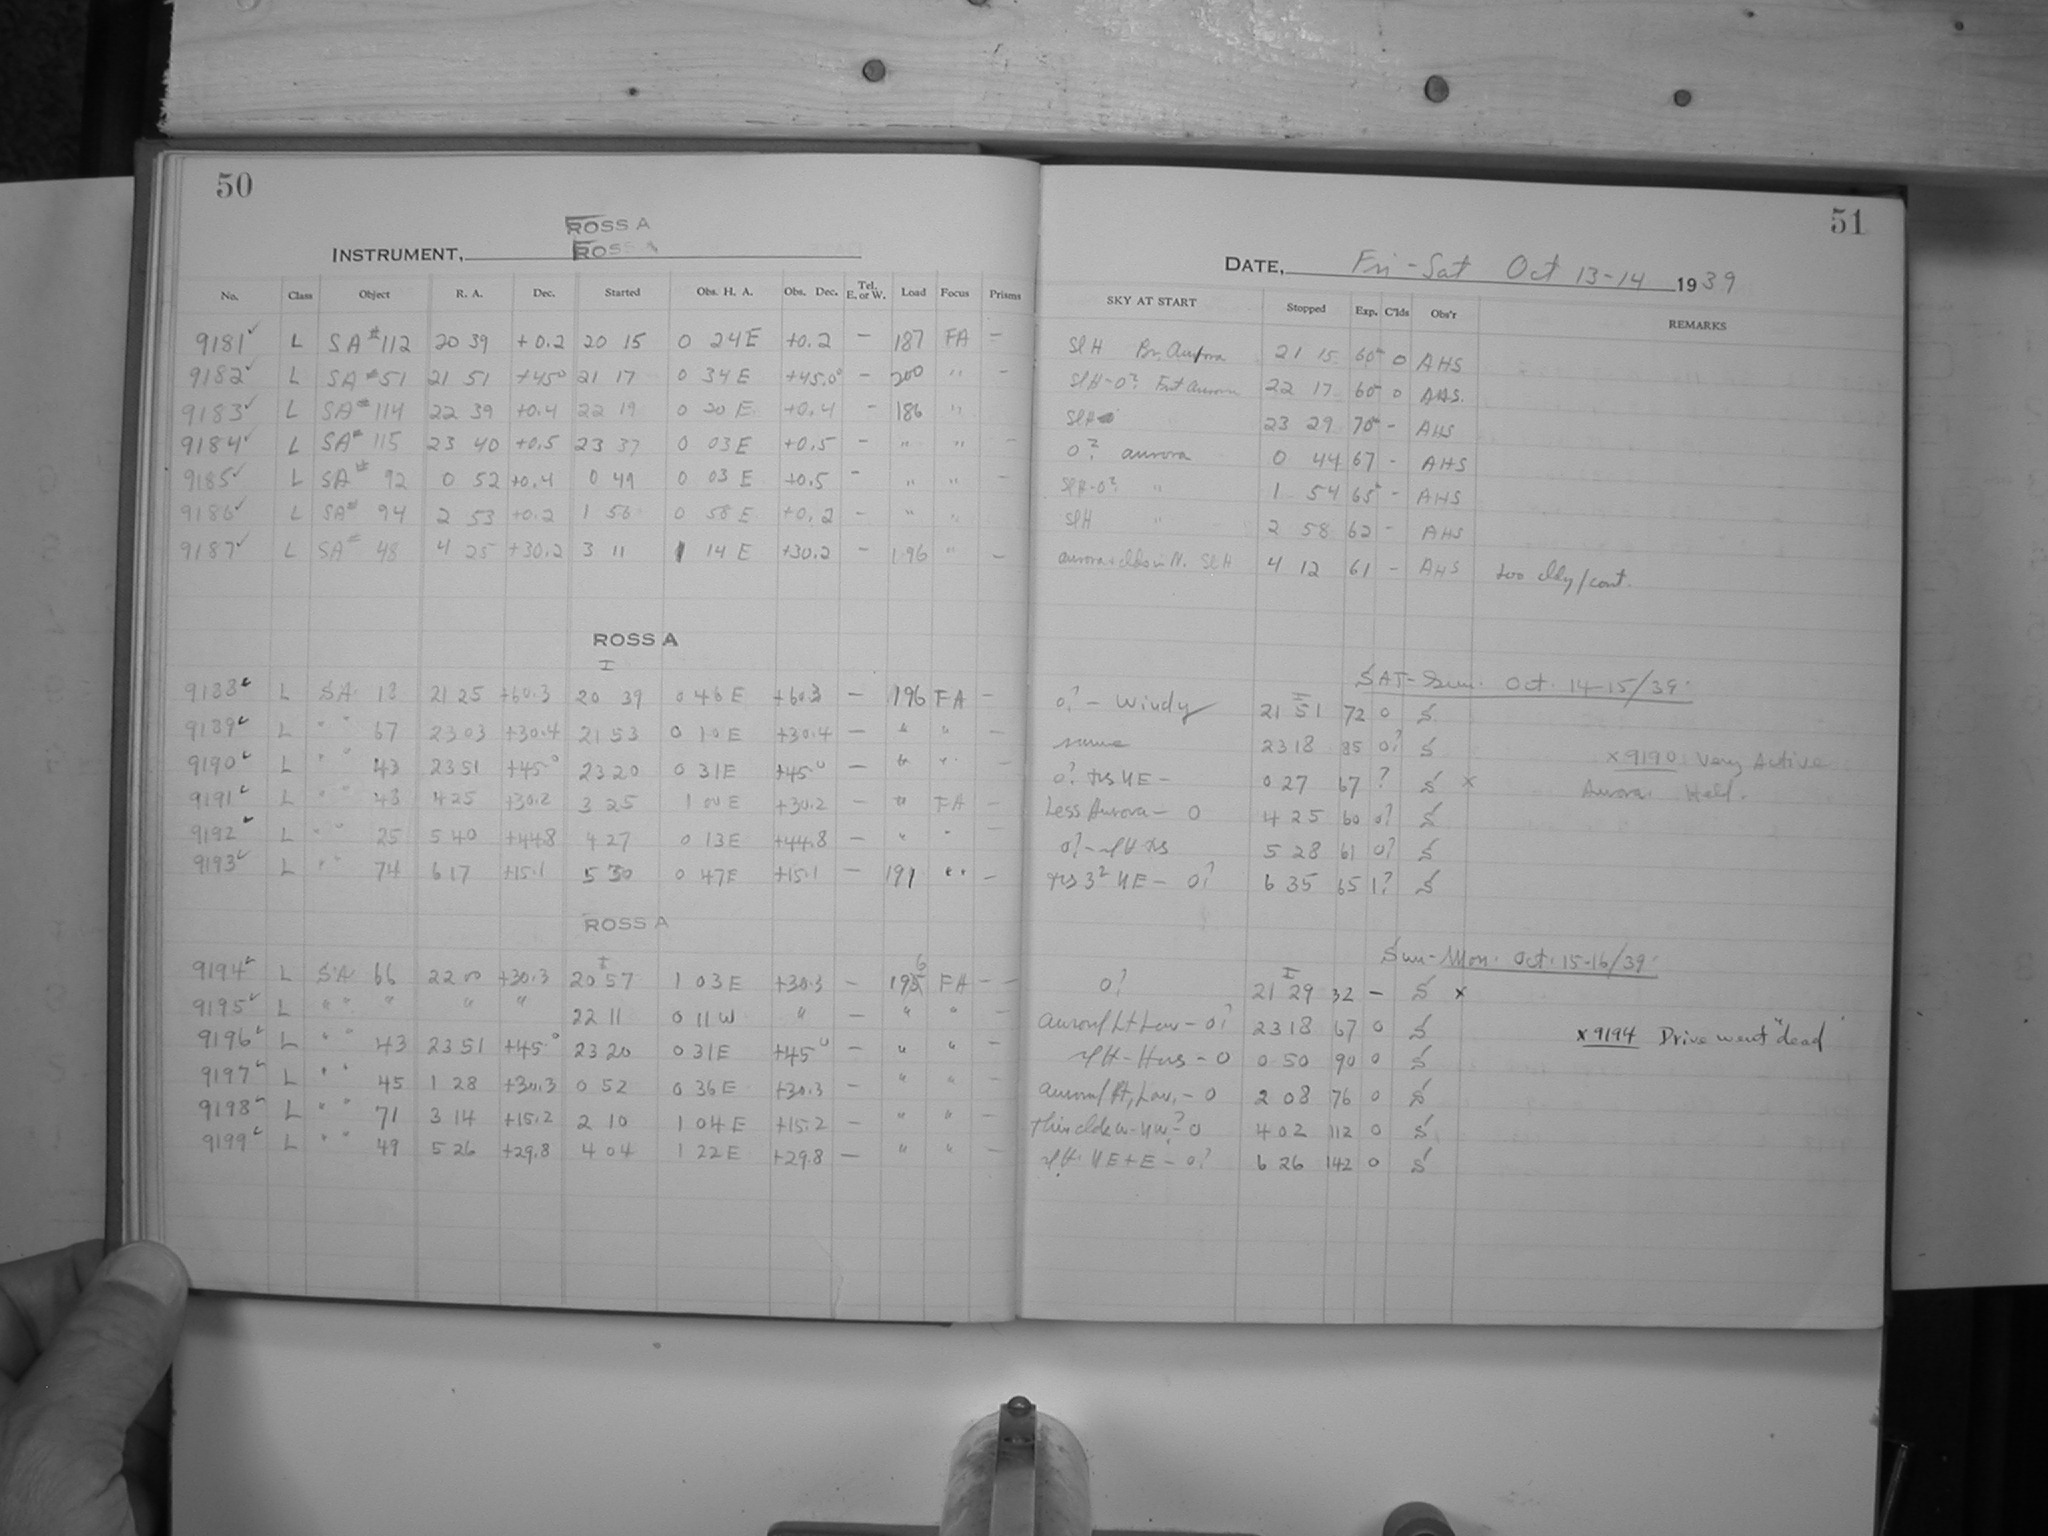 50
ROSS A
INSTRUMENT, ROSS A
No. Class Object R. A. Dec. Started Obs. H. A. Obs. Dec. Tel. E. or W. Load Focus Prisms
9181 L SA #112 20 39 +0.2 20 15 0 24E +0.2 - 187 FA -
9182 L SA #51 21 51 +45° 21 17 0 34E +45.0° - 200 " -
9183 L SA #114 22 39 +0.4 22 19 0 20E +0.4 - 186 "
9184 L SA# 115 23 40 +0.5 23 37 0 03E +0.5 - " " -
9185 L SA# 92 0 52 +0.4 0 49 0 03E +0.5 - " " -
9186 L SA# 94 2 53 +0.2 1 56 0 58E +0.2 - " "
9187 L SA# 48 4 25 +30.2 3 11 1 14E +30.2 - 196 " -
ROSS A
I
9188 L SA 18 21 25 +60.3 20 39 0 46E +60.3 - 196 FA -
9189 L " " 67 23 03 +30.4 21 53 0 10E +30.4 - " " -
9190 L " " 43 23 51 +45° 23 20 0 31E +45° - " " -
9191 L " " 48 4 25 +30.2 3 25 1 00E +30.2 - " FA -
9192 L " " 25 5 40 +44.8 4 27 0 13E +44.8 - " " -
9193 L " " 74 6 17 +15.1 5 30 0 47E +15.1 - 191 " -
ROSS A
9194 L SA 66 22 00 +30.3 20 57 1 03E +30.3 - 196 FA - -
9195 L " " " " " 22 11 0 11W " - " " -
9196 L " " 43 23 51 +45.° 23 20 0 31E +45° - " " -
9197 L " " 45 1 28 +30.3 0 52 0 36E +30.3 - " " -
9198 L " " 71 3 14 +15.2 2 10 1 04E +15.2 - " " -
9199 L " " 49 5 26 +29.8 4 04 1 22E +29.8 - " " -
51
DATE, Fri - Sat Oct 13-14 1939
SKY AT START Stopped Exp. C'lds Obs'r REMARKS
Sl H Br. Aurora 21 15 60 0 AHS
Sl H-0? Fnt aurora 22 17 60 0 AHS.
Sl H 23 29 70 - AHS
0? aurora 0 44 67 - AHS
Sl H-0? " 1 54 65 - AHS
Sl H " 2 58 62 - AHS
aurora + clds in N. Sl H 4 12 61 - AHS too cldy/cont.
SAT-Sun. Oct. 14-15/39.
0? - Windy 21 51 72 0 S
same 23 18 85 0? S
0? NE - 0 27 67 ? S x
x9190: Very Active
Aurora. Held.
Less Aurora - 0 4 25 60 0? S
0? - 5 28 61 0? S
NE - 0? 6 35 65 1? S
Sun-Mon. Oct. 15-16/39.
0? 21 29 32 - S x
Low - 0? 23 18 67 0 S
x9194 Drive went "dead"
- 0 0 50 90 0 S
Low. - 0 2 08 76 0 S
thin clds W-NW? 0 4 02 112 0 S
NE + E - 0? 6 26 142 0 S